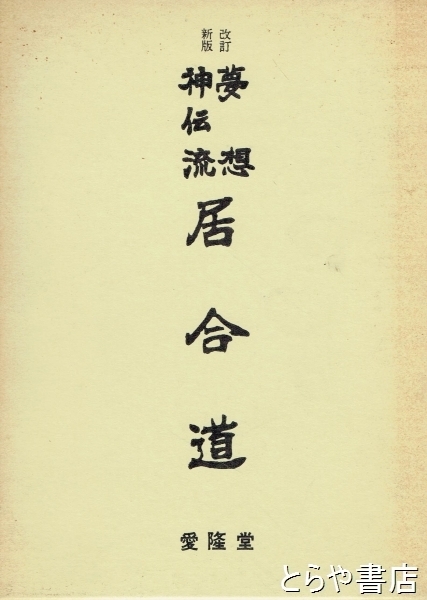 改訂
新版
夢想
神伝流
居合道
愛隆堂
とらや書店